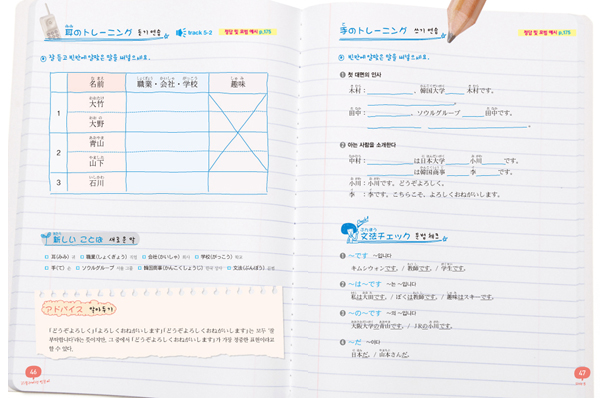 耳のトレーニング 듣기 연습 track 5-2 정답 및 모범 예시 p.175
잘 듣고 빈칸에 알맞은 말을 써넣으세요.
名前 職業・会社・学校 趣味
1 大竹
大野
2 青山
山下
3 石川
新しい ことば 새로운 말
耳(みみ) 귀 職業(しょくぎょう) 직업 会社(かいしゃ) 회사 学校(がっこう) 학교
手(て) 손 ソウルグループ 서울 그룹 韓国商事(かんこくしょうじ) 한국 상사 文法(ぶんぽう) 문법
アドバイス 알아두기
「どうぞよろしく」「よろしくおねがいします」「どうぞよろしくおねがいします」는 모두 '잘
부탁합니다'라는 뜻이지만, 그 중에서 「どうぞよろしくおねがいします」가 가장 정중한 표현이라고
할 수 있다.
46
手のトレーニング 쓰기 연습 정답 및 모범 예시 p.175
빈칸에 알맞은 말을 써넣으세요.
1 첫 대면의 인사
木村: 、韓国大学 木村です。
、 。
田中: 、ソウルグループ 田中です。
。
2 아는 사람을 소개한다
中村: は日本大学 小川 です。
は韓国商事 李 です。
小川:小川です。どうぞよろしく。
李:李です。こちらこそ、よろしくおねがいします。
Check!
文法チェック 문법 체크
1 〜です ~입니다
キムシウォンです。/ 教師です。/ 学生です。
2 〜は〜です ~는 ~입니다
私は大田です。/ ぼくは教師です。/ 趣味はスキーです。
3 〜の〜です ~의 ~입니다
大阪大学の青山です。/ JKの小川です。
4 〜だ ~이다
日本だ。/ 山本さんだ。
47